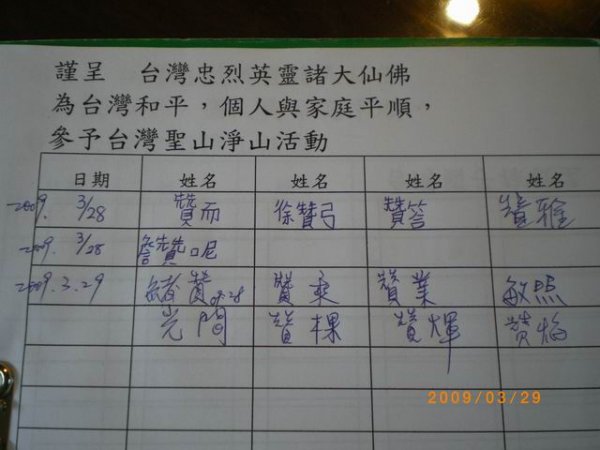 謹呈　台灣忠烈英靈諸大仙佛
為台灣和平，個人與家庭平順，
參予台灣聖山淨山活動
日期 姓名 姓名 姓名 姓名
2009. 3/28 贊而 徐贊弓 贊答 贊雅
2009. 3/28 詹贊呢
2009.3.29 緒贊 09-28 贊乘 贊業 敏照
光閒 贊棵 贊煇 贊焰
2009/03/29